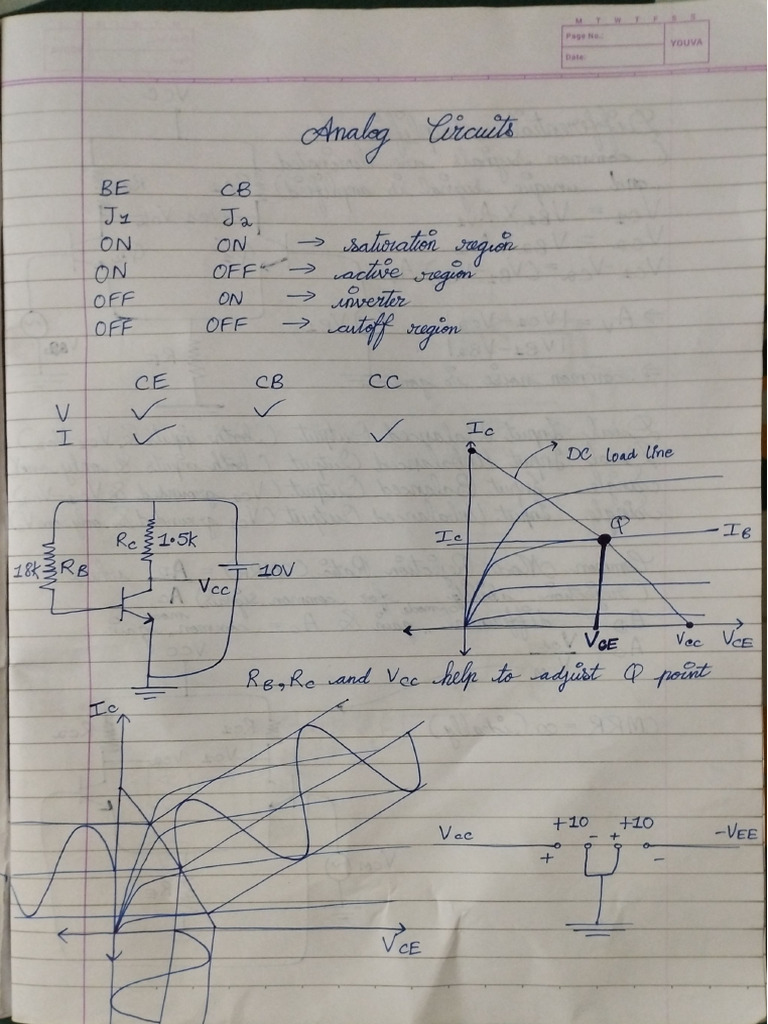 M T W T F S S
Page No.:
YOUVA
Date:
Analog Circuits
BE CB
J1 J2
ON ON → saturation region
ON OFF → active region
OFF ON → inverter
OFF OFF → cutoff region
CE CB CC
V ✓ ✓
I ✓ ✓
Ic
DC load line
Ic Q IB
VCE Vcc VCE
18k RB Rc 1.5k
Vcc 10V
RB, Rc and Vcc help to adjust Q point
Ic
VCE
Vcc +10 +10 -VEE
+ - + -